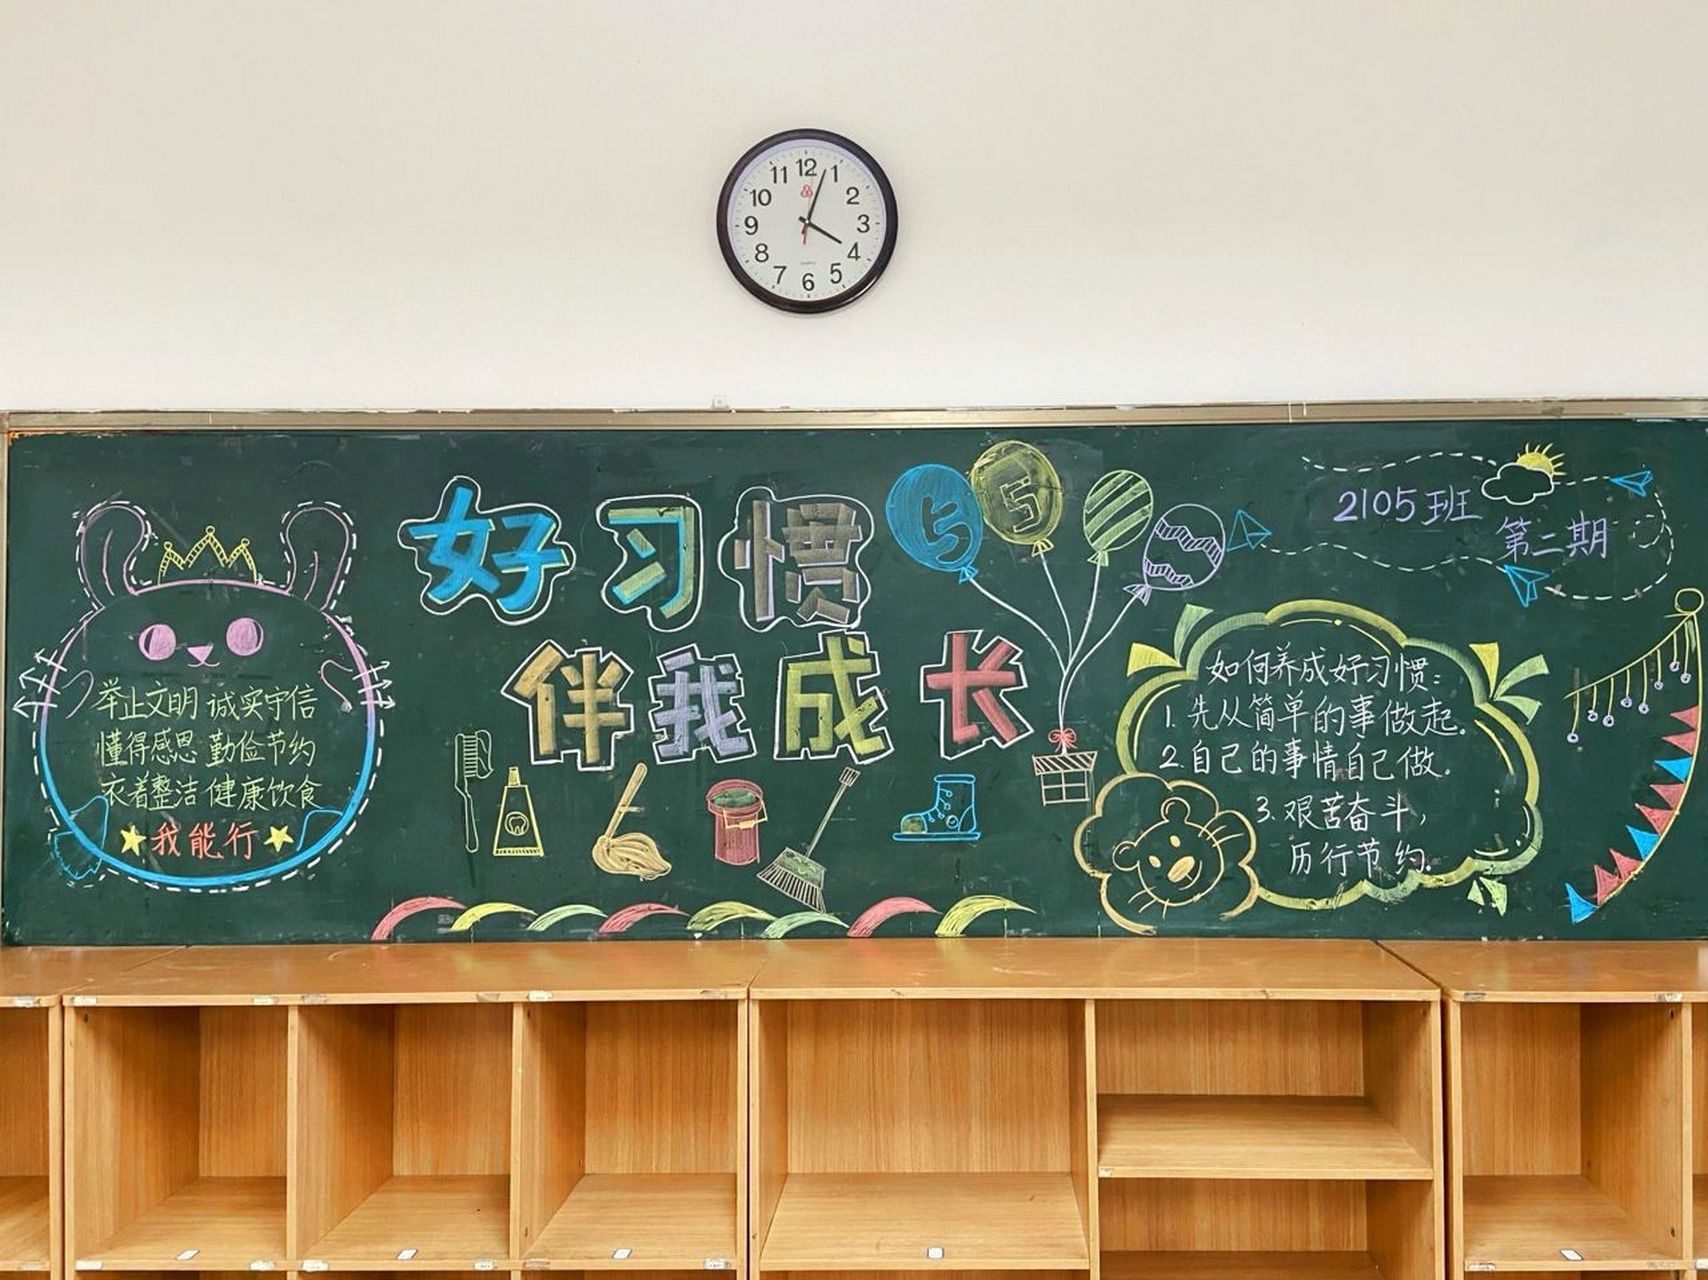 12
1
2
3
4
5
6
7
8
9
10
11
好习惯
伴我成长
与
5
2105班
第二期
举止文明 诚实守信
懂得感恩 勤俭节约
衣着整洁 健康饮食
我能行
如何养成好习惯:
1. 先从简单的事做起.
2. 自己的事情自己做.
3. 艰苦奋斗,
历行节约.